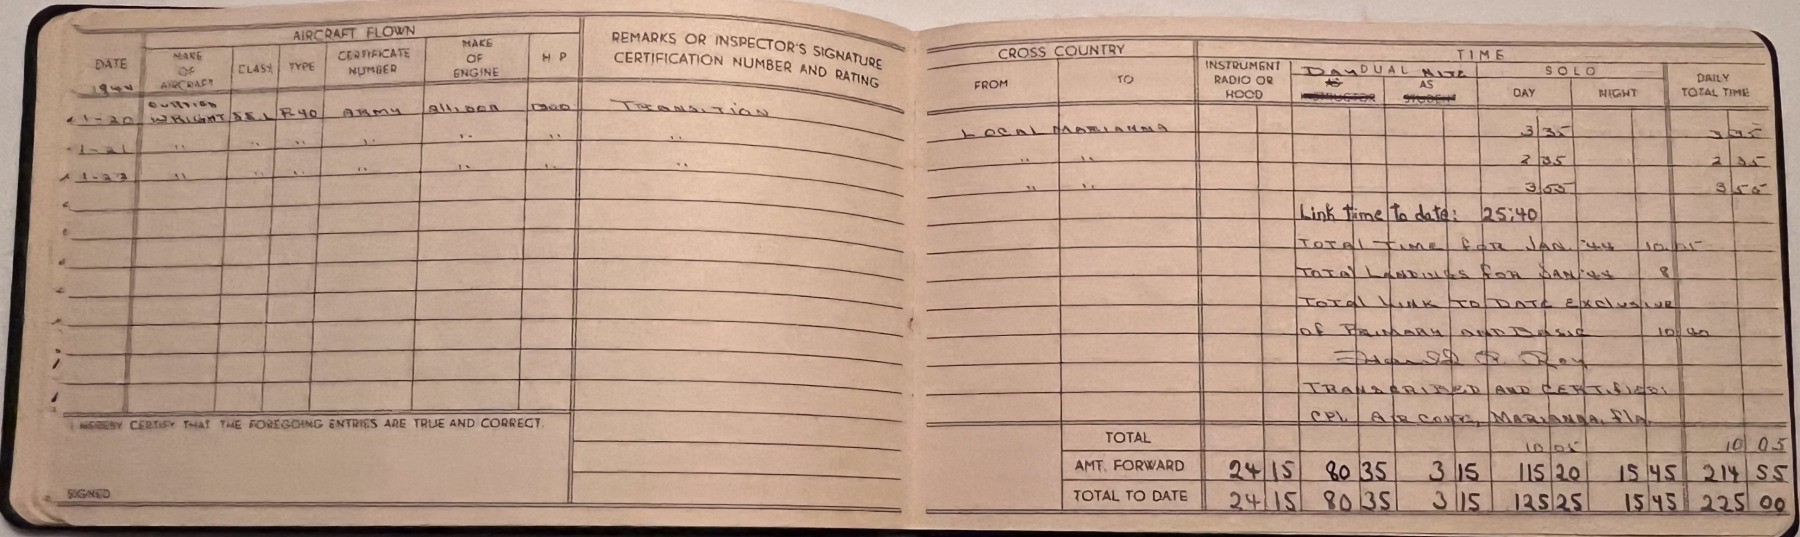 AIRCRAFT FLOWN
DATE
1944
MAKE OF AIRCRAFT
CLASS
TYPE
CERTIFICATE NUMBER
MAKE OF ENGINE
H P
REMARKS OR INSPECTOR'S SIGNATURE
CERTIFICATION NUMBER AND RATING
1-20 CURTISS WRIGHT S.E.L P40 ARMY ALLISON TRANSITION
1-21 " " " " " " "
" " " " " " "
I HEREBY CERTIFY THAT THE FOREGOING ENTRIES ARE TRUE AND CORRECT.
SIGNED
CROSS COUNTRY
FROM
TO
TIME
INSTRUMENT RADIO OR HOOD
DAY DUAL NITE
AS INSTRUCTOR
AS STUDENT
SOLO
DAY
NIGHT
DAILY TOTAL TIME
LOCAL MARIANNA 3 35 3 35
" " 2 35 2 35
" " 3 55 3 55
Link time to date: 25:40
TOTAL TIME FOR JAN '44 10 05
TOTAL LANDINGS FOR JAN '44 8
TOTAL LINK TO DATE EXCLUSIVE
OF PRIMARY AND BASIC 10 40
TRANSCRIBED AND CERTIFIED:
CPL AIR CORPS, MARIANNA, FLA.
TOTAL 10 05 10 05
AMT. FORWARD 24 15 80 35 3 15 115 20 15 45 214 55
TOTAL TO DATE 24 15 80 35 3 15 125 25 15 45 225 00